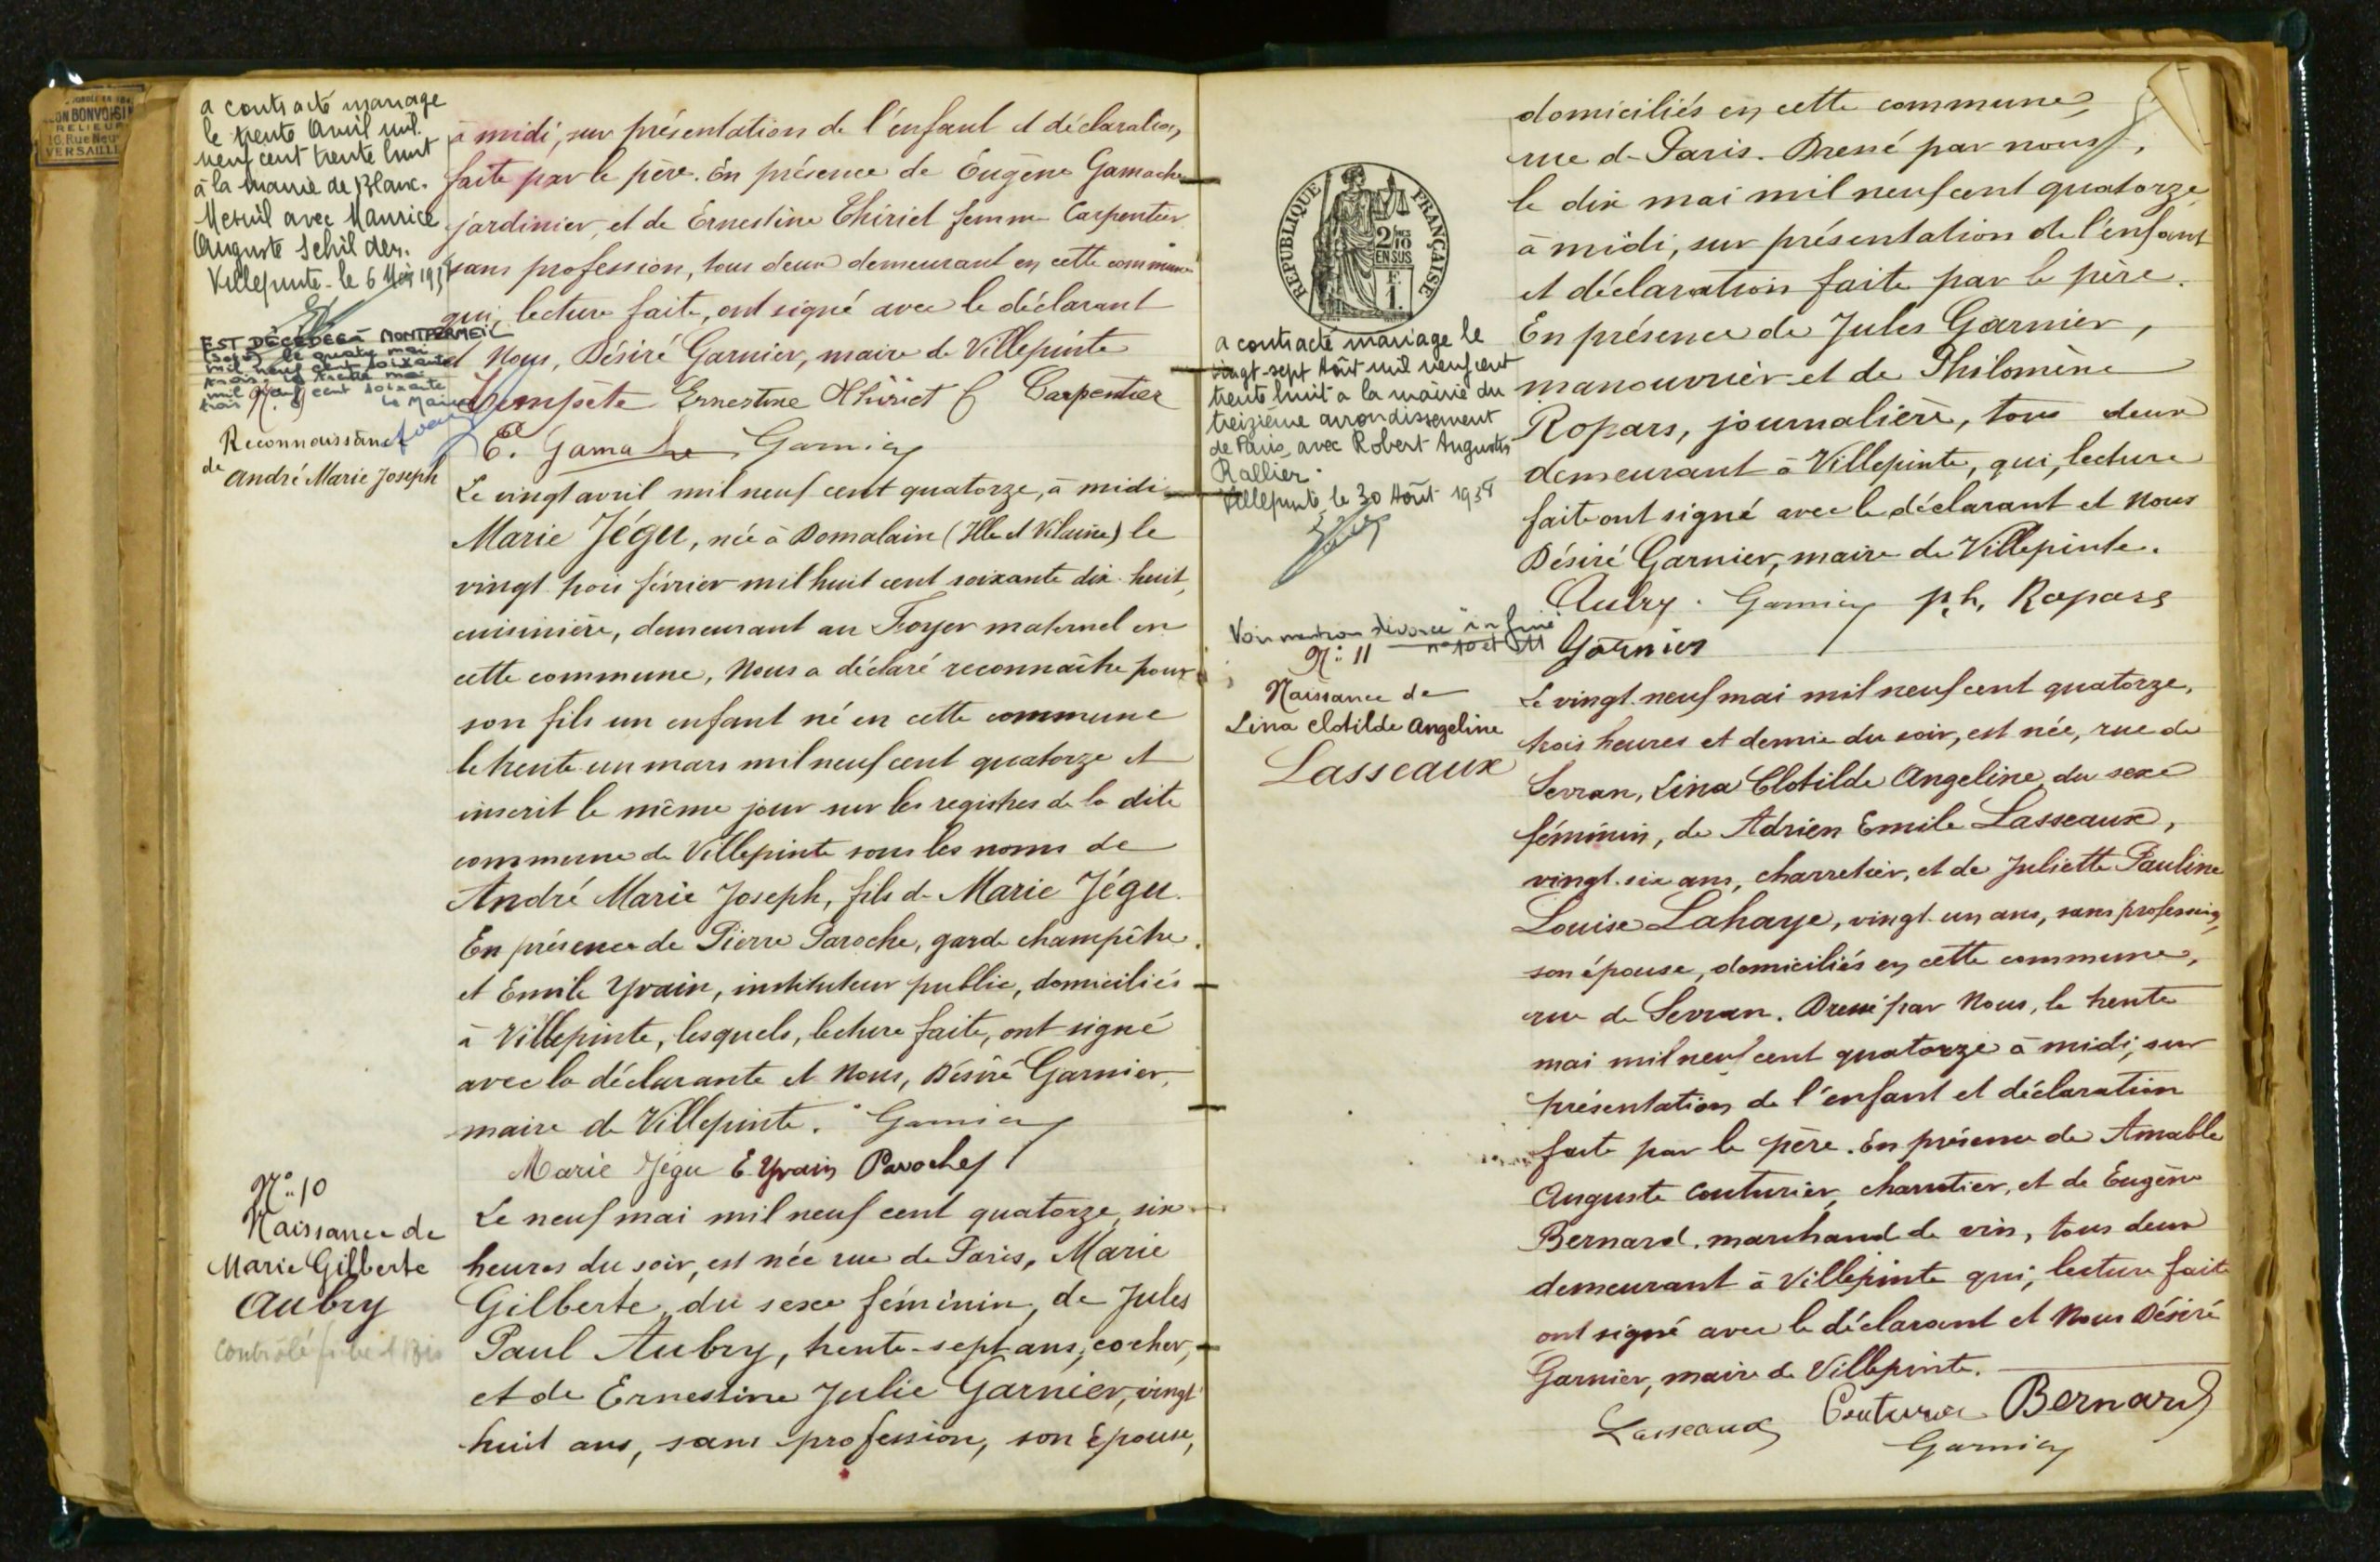 BONVOISIN
RELIEUR
16, Rue Neuve
VERSAILLES
a contracté mariage
le trente Avril mil
neuf cent trente huit
à la mairie de Blanc-
Mesnil avec Maurice
Auguste Schilder.
Villepinte - le 6 Mai 193
EST DÉCÉDÉE à MONTFERMEIL
le quatre mai
mil neuf cent soixante
trois. Le treize mai
mil neuf cent soixante
trois Le Maire
Reconnaissance
de
André Marie Joseph
N° 10
Naissance de
Marie Gilberte
Aubry
Contrôlé
à midi, sur présentation de l'enfant et déclaration
faite par le père. En présence de Eugène Gamache
jardinier, et de Ernestine Thiriet femme Carpentier
sans profession, tous deux demeurant en cette commune
qui, lecture faite, ont signé avec le déclarant
et Nous, Désiré Garnier, maire de Villepinte
Ernestine Thiriet f Carpentier
E. Gamache Garnier
Le vingt avril mil neuf cent quatorze, à midi
Marie Jégu, née à Domalain (Ille et Vilaine) le
vingt trois février mil huit cent soixante dix-huit,
cuisinière, demeurant au Foyer maternel en
cette commune, Nous a déclaré reconnaître pour
son fils un enfant né en cette commune
le trente un mars mil neuf cent quatorze et
inscrit le même jour sur les registres de la dite
commune de Villepinte sous les noms de
André Marie Joseph, fils de Marie Jégu.
En présence de Pierre Paroche, garde champêtre
et Emile Yvain, instituteur public, domiciliés
à Villepinte, lesquels, lecture faite, ont signé
avec la déclarante et Nous, Désiré Garnier,
maire de Villepinte. Garnier
Marie Jégu E. Yvain Paroche
Le neuf mai mil neuf cent quatorze, six
heures du soir, est née rue de Paris, Marie
Gilberte, du sexe féminin, de Jules
Paul Aubry, trente-sept ans, cocher,
et de Ernestine Julie Garnier, vingt
huit ans, sans profession, son épouse,
RÉPUBLIQUE FRANÇAISE
2/10
EN SUS
F.
1.
a contracté mariage le
vingt-sept Août mil neuf cent
trente huit à la mairie du
treizième arrondissement
de Paris, avec Robert Auguste
Rallier.
Villepinte, le 30 Août 1938
Voir mention divorce in fine
n° 10 et 11
N° 11
Naissance de
Lina Clotilde Angeline
Lasseaux
domiciliés en cette commune,
rue de Paris. Dressé par nous,
le dix mai mil neuf cent quatorze
à midi, sur présentation de l'enfant
et déclaration faite par le père.
En présence de Jules Garnier,
manouvrier et de Philomène
Ropars, journalière, tous deux
demeurant à Villepinte, qui, lecture
faite ont signé avec le déclarant et Nous
Désiré Garnier, maire de Villepinte.
Aubry. Garnier ph. Ropars
Garnier
Le vingt-neuf mai mil neuf cent quatorze,
trois heures et demie du soir, est née, rue de
Sevran, Lina Clotilde Angeline, du sexe
féminin, de Adrien Emile Lasseaux,
vingt-six ans, charretier, et de Juliette Pauline
Louise Lahaye, vingt-un ans, sans profession,
son épouse, domiciliés en cette commune,
rue de Sevran. Dressé par Nous, le trente
mai mil neuf cent quatorze à midi, sur
présentation de l'enfant et déclaration
faite par le père. En présence de Amable
Auguste Couturier, charretier, et de Eugène
Bernard, marchand de vin, tous deux
demeurant à Villepinte qui, lecture faite
ont signé avec le déclarant et Nous Désiré
Garnier, maire de Villepinte.
Lasseaux Couturier Bernard
Garnier